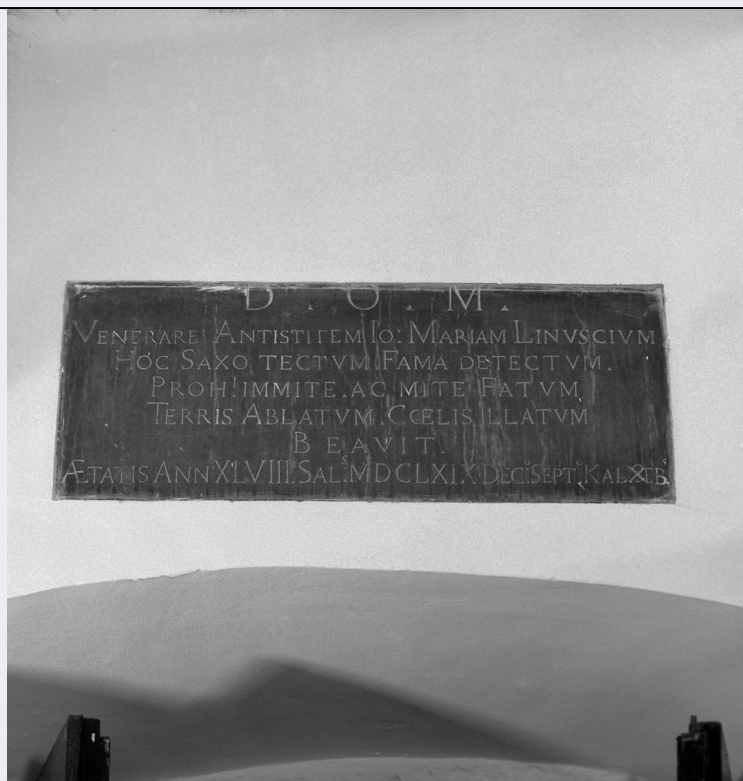 D . O . M .
VENERARE ANTISTITEM IO: MARIAM LINVSCIVM
HOC SAXO TECTVM FAMA DETECTVM.
PROH! IMMITE AC MITE FATVM
TERRIS ABLATVM CŒLIS ILLATVM
BEAVIT.
ÆTATIS ANN XLVIII. SAL. MDCLXIX DEC. SEPT. KAL. XTB